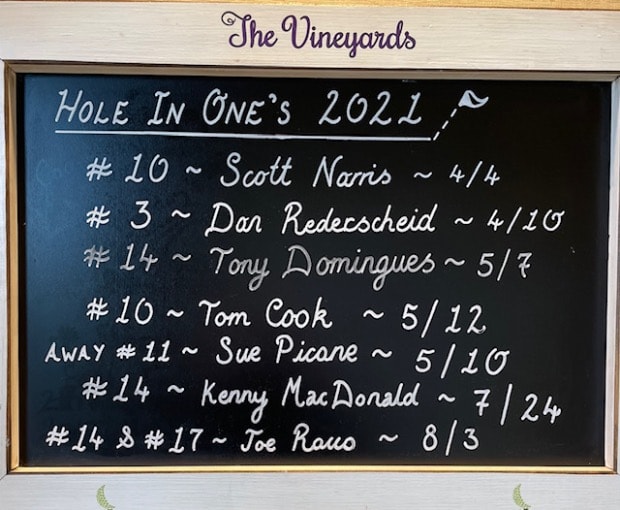 The Vineyards
HOLE IN ONE'S 2021
# 10 ~ Scott Norris ~ 4/4
# 3 ~ Dan Rederscheid ~ 4/10
# 14 ~ Tony Domingues ~ 5/7
# 10 ~ Tom Cook ~ 5/12
AWAY # 11 ~ Sue Picane ~ 5/10
# 14 ~ Kenny MacDonald ~ 7/24
# 14 & # 17 ~ Joe ~ 8/3